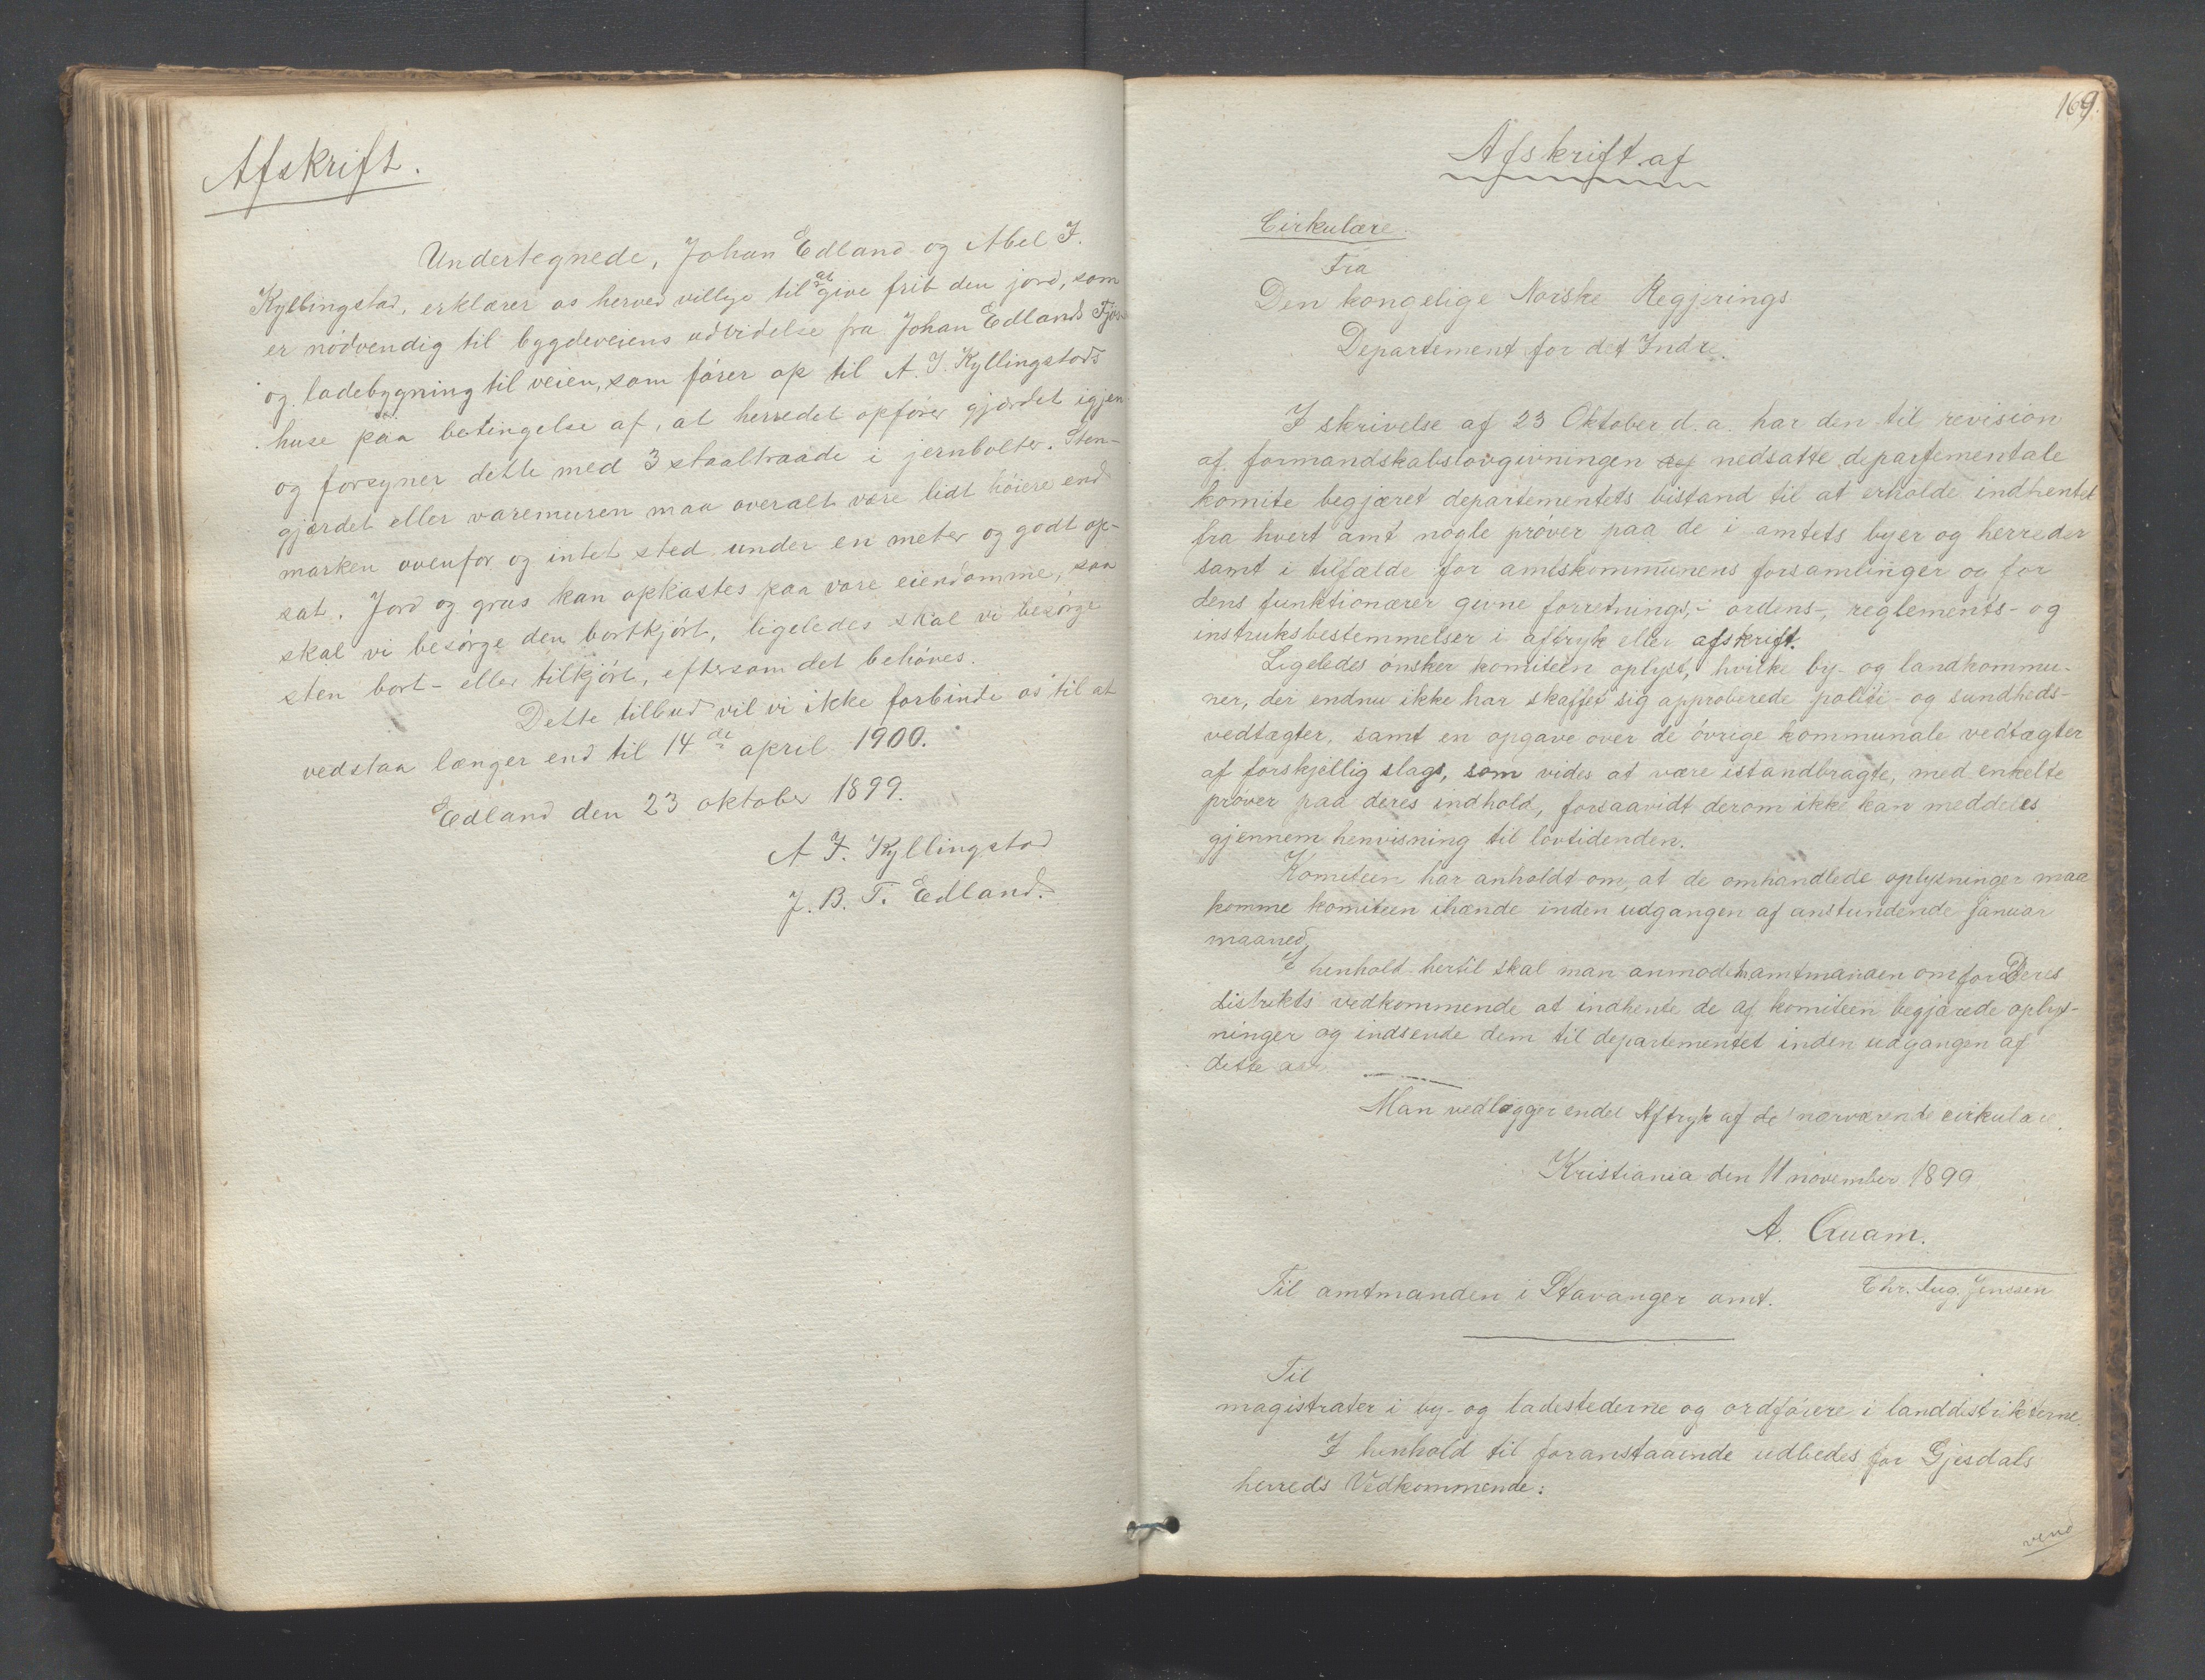 Afskrift.
Undertegnede, Johan Edland og Abel J.
Kyllingstad, erklærer os herved villige til at give frit den jord, som
er nödvendig til bygdeveiens udvidelse fra Johan Edlands Fjøs-
og ladebygning til veien, som fører op til A. J. Kyllingstads
huse paa betingelse af, at herredet opfører gjærdet igjen
og forsyner dette med 3 staaltraade i jernbolter. Sten-
gjærdet eller varemuren maa overalt være lidt höiere end
marken ovenfor og intet sted under en meter og godt op-
sat. Jord og grus kan opkastes paa vore eiendomme, saa
skal vi besörge den bortkjört, ligeledes skal vi besörge
sten bort- eller tilkjört, eftersom det behöves.
Dette tilbud vil vi ikke forbinde os til at
vedstaa længer end til 14de april 1900.
Edland den 23 oktober 1899.
A J. Kyllingstad
J. B. T. Edland.
169.
Afskrift af
Cirkulære.
Fra
Den kongelige Norske Regjerings
Departement for det Indre.
I skrivelse af 23 Oktober d. a. har den til revision
af formandskabslovgivningen nedsatte departementale
komite begjæret departementets bistand til at erholde indhentet
fra hvert amt nogle prøver paa de i amtets byer og herreder
samt i tilfælde for amtskommunens forsamlinger og for
dens funktionærer givne forretnings-, ordens-, reglements- og
instruksbestemmelser i aftryk eller afskrift.
Ligeledes ønsker komiteen oplyst, hvilke by- og landkommu-
ner, der endnu ikke har skaffet sig approberede politi- og sundheds-
vedtægter, samt en opgave over de övrige kommunale vedtægter
af forskjellig slags, som vides at være istandbragte, med enkelte
prøver paa deres indhold, forsaavidt derom ikke kan meddeles
gjennem henvisning til lovtidenden.
Komiteen har anholdt om, at de omhandlede oplysninger maa
komme komiteen ihænde inden udgangen af anstundende januar
maaned.
I henhold hertil skal man anmode hr amtmanden om for Deres
distrikts vedkommende at indhente de af komiteen begjærede oplys-
ninger og indsende dem til departementet inden udgangen af
dette aar.
Man vedlægger endel Aftryk af de nærværende cirkulære.
Kristiania den 11 november 1899
A. Quam.
Chr. Aug. Jenssen
Til amtmanden i Stavanger amt.
Til
magistrater i by- og ladestederne og ordførere i landdistrikterne.
I henhold til foranstaaende udbedes for Gjesdals
herreds Vedkommende:
vend